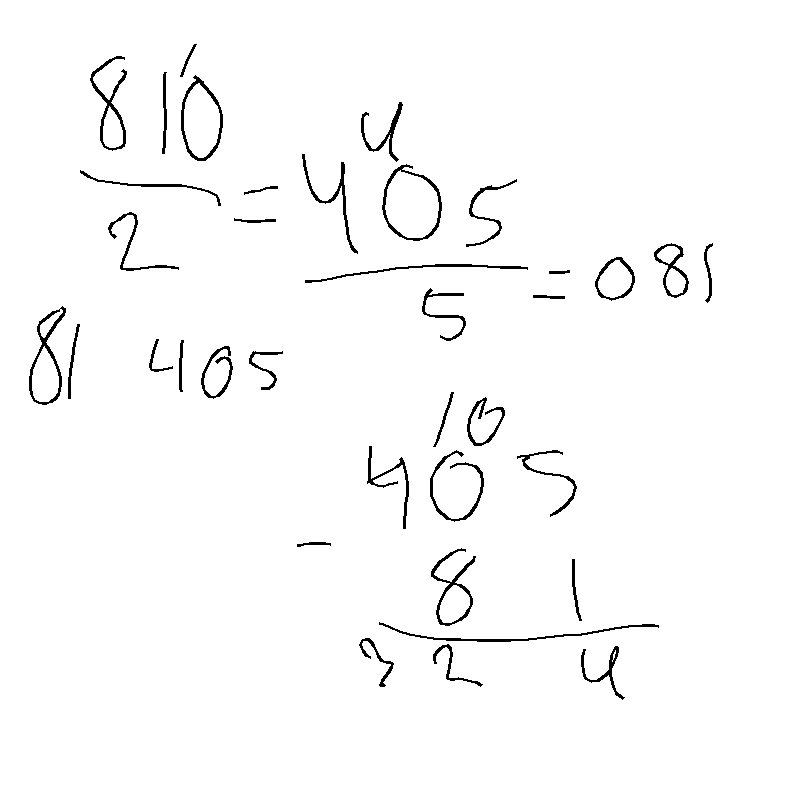 810
2
=
4
405
5
= 081
81 405
10
405
- 81
324